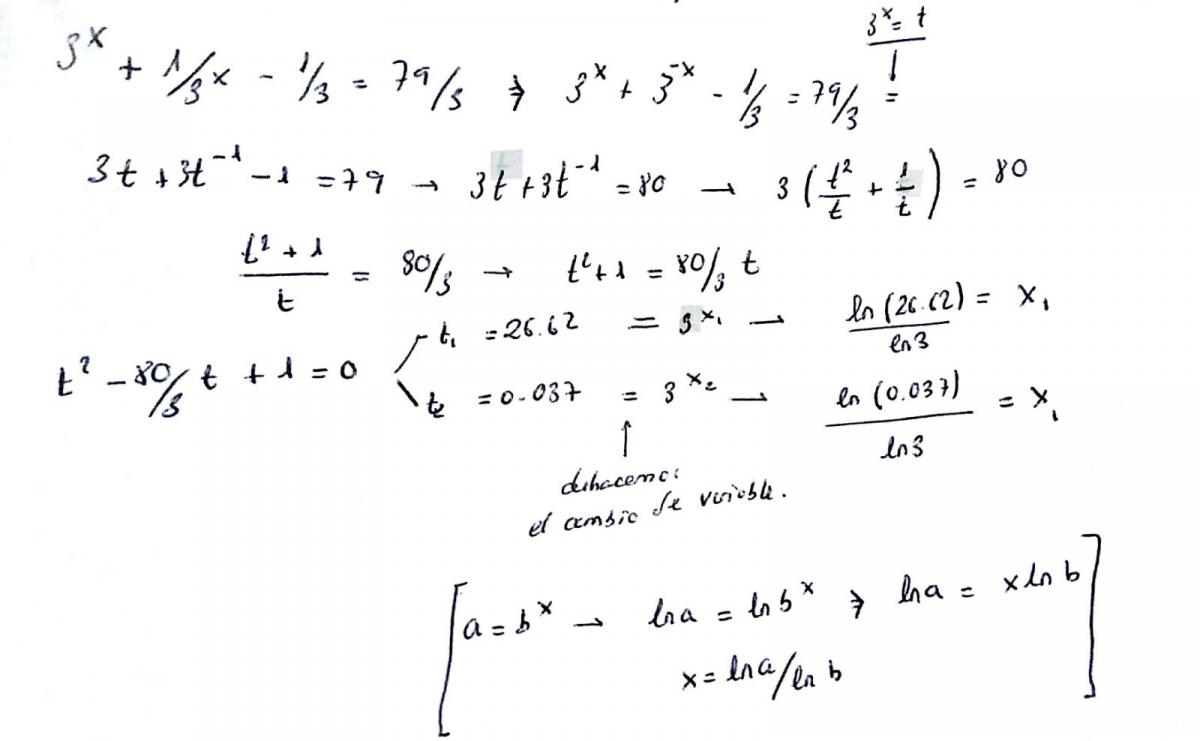 3^x = t
3^x + 1/3^x - 1/3 = 79/3 ⇒ 3^x + 3^-x - 1/3 = 79/3 =
3t + 3t^-1 - 1 = 79 → 3t + 3t^-1 = 80 → 3 (t²/t + 1/t) = 80
(t² + 1)/t = 80/3 → t² + 1 = 80/3 t
t² - 80/3 t + 1 = 0
t₁ = 26.62 = 3^x₁ → ln (26.62)/ln3 = x₁
t₂ = 0.037 = 3^x₂ → ln (0.037)/ln3 = x₁
↑
deshacemos
el cambio de variable.
[a = b^x → ln a = ln b^x ⇒ ln a = x ln b]
x = ln a/ln b